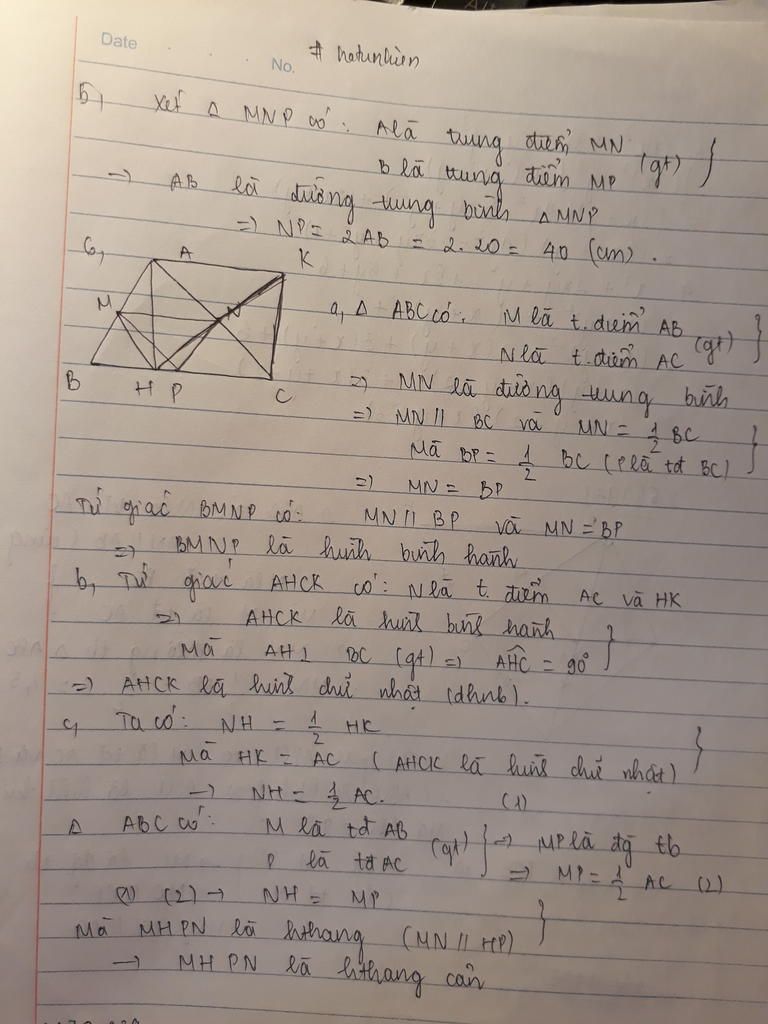 Date
No.
# hatunhien
5, Xét Δ MNP có: A là trung điểm MN
B là trung điểm MP (gt)
=> AB là đường trung bình ΔMNP
=> NP = 2AB = 2.20 = 40 (cm).
6,
A
K
M
N
B
H
P
C
a, Δ ABC có: M là t.điểm AB
N là t.điểm AC (gt)
=> MN là đường trung bình
=> MN // BC và MN = 1/2 BC
Mà BP = 1/2 BC (P là tđ BC)
=> MN = BP
Tứ giác BMNP có: MN // BP và MN = BP
=> BMNP là hình bình hành
b, Tứ giác AHCK có: N là t.điểm AC và HK
=> AHCK là hình bình hành
Mà AH ⊥ BC (gt) => AHC = 90°
=> AHCK là hình chữ nhật (dhnb).
c, Ta có: NH = 1/2 HK
Mà HK = AC (AHCK là hình chữ nhật)
→ NH = 1/2 AC. (1)
Δ ABC có: M là tđ AB
P là tđ AC (gt) => MP là đg tb
=> MP = 1/2 AC (2)
(1) (2) → NH = MP
Mà MHPN là hthang (MN // HP)
→ MHPN là hthang cân